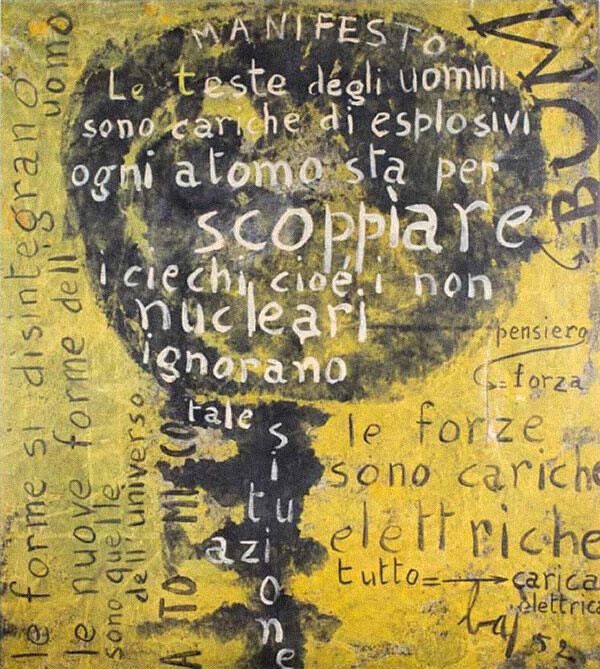 MANIFESTO
Le teste degli uomini
sono cariche di esplosivi
ogni atomo sta per
scoppiare
i ciechi cioé i non
nucleari
ignorano
tale
situazione
le forme si disintegrano
le nuove forme dell' uomo
sono quelle
dell' universo
ATOMICO
=BUM
pensiero
= forza
le forze
sono cariche
elettriche
tutto= carica
elettrica
baj 52